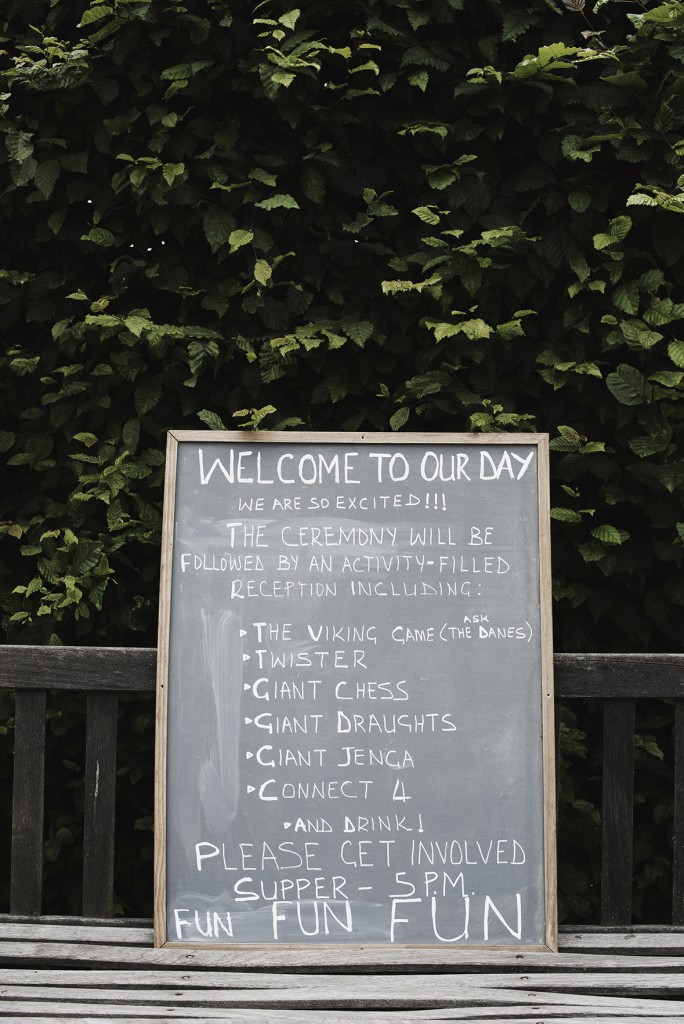 WELCOME TO OUR DAY
WE ARE SO EXCITED!!!
THE CEREMONY WILL BE
FOLLOWED BY AN ACTIVITY-FILLED
RECEPTION INCLUDING:
▸THE VIKING GAME (ASK THE DANES)
▸TWISTER
▸GIANT CHESS
▸GIANT DRAUGHTS
▸GIANT JENGA
▸CONNECT 4
▸AND DRINK!
PLEASE GET INVOLVED
SUPPER - 5 P.M.
FUN FUN FUN